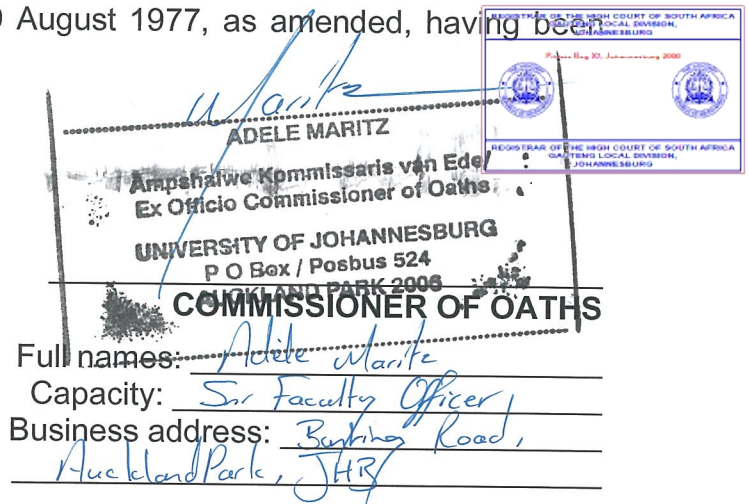 August 1977, as amended, having been
REGISTRAR OF THE HIGH COURT OF SOUTH AFRICA
GAUTENG LOCAL DIVISION,
JOHANNESBURG
Private Bag X7, Johannesburg 2000
REGISTRAR OF THE HIGH COURT OF SOUTH AFRICA
GAUTENG LOCAL DIVISION,
JOHANNESBURG
Maritz
ADELE MARITZ
Ampshalwe Kommissaris van Ede
Ex Officio Commissioner of Oaths
UNIVERSITY OF JOHANNESBURG
P O Box / Posbus 524
AUCKLAND PARK 2006
COMMISSIONER OF OATHS
Full names: Adèle Maritz
Capacity: Snr Faculty Officer
Business address: Bunting Road,
Auckland Park, JHB